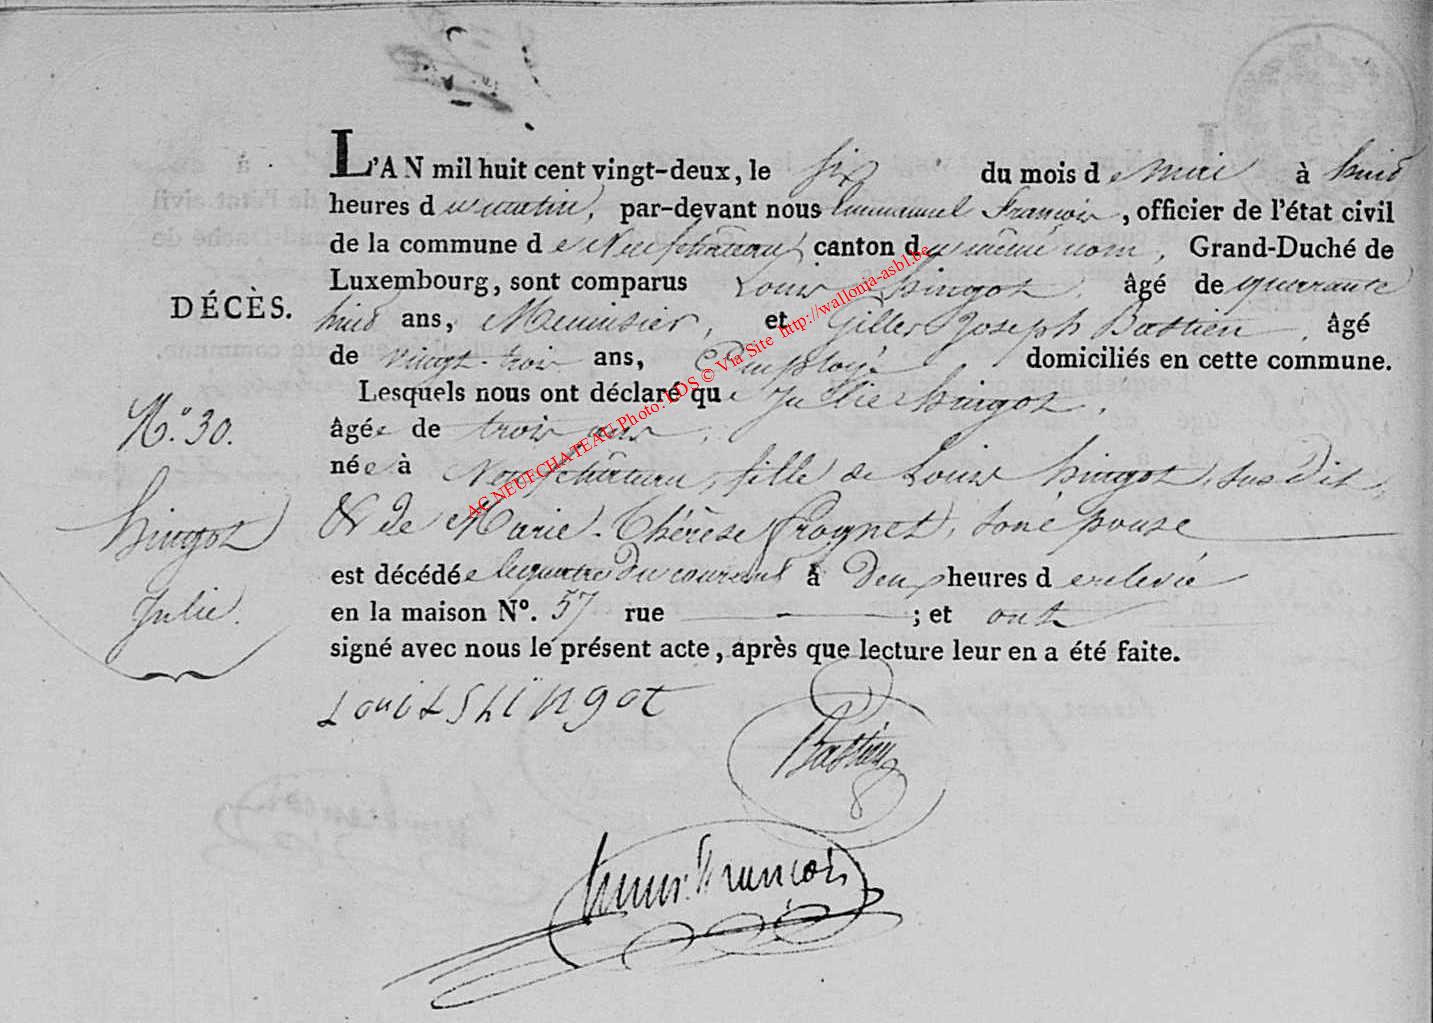 L'AN mil huit cent vingt-deux, le six du mois de mai à huit
heures du matin, par-devant nous Emmanuel François, officier de l'état civil
de la commune de Neufchâteau, canton du même nom, Grand-Duché de
Luxembourg, sont comparus Louis hingot, âgé de quarante
DÉCÈS.
huit ans, Menuisier, et Gilles Joseph Bastien, âgé
de vingt-trois ans, Employé domiciliés en cette commune.
Lesquels nous ont déclaré que Julie hingot,
N.º 30.
âgée de trois ans,
née à Neufchâteau, fille de Louis hingot, susdit,
& de Marie-Thérèse Prognet, son épouse
hingot
est décédée le quatre du courant à Deux heures de relevée
Julie.
en la maison Nº. 57 rue — ; et ont
signé avec nous le présent acte, après que lecture leur en a été faite.
Louis Shingot
Bastien
Emm. François
AC NEUFCHATEAU Photo: LDS © Via Site http://wallonia-asbl.be